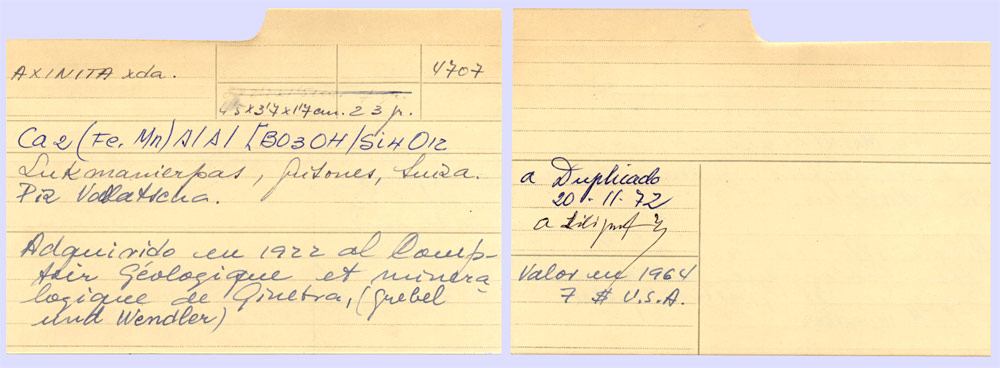 AXINITA xda.
4707
4'5x3'7x1'7 cm. 23 gr.
Ca2 (Fe, Mn) Al Al [BO3OH/Si4O12
Lukmanierpas, Grisones, Suiza.
Piz Vallatscha.
Adquirido en 1922 al Comp-
toir Géologique et minera-
logique de Ginebra, (Grebel
und Wendler)
a Duplicado
20-11-72
a
Valor en 1964
7 $ U.S.A.